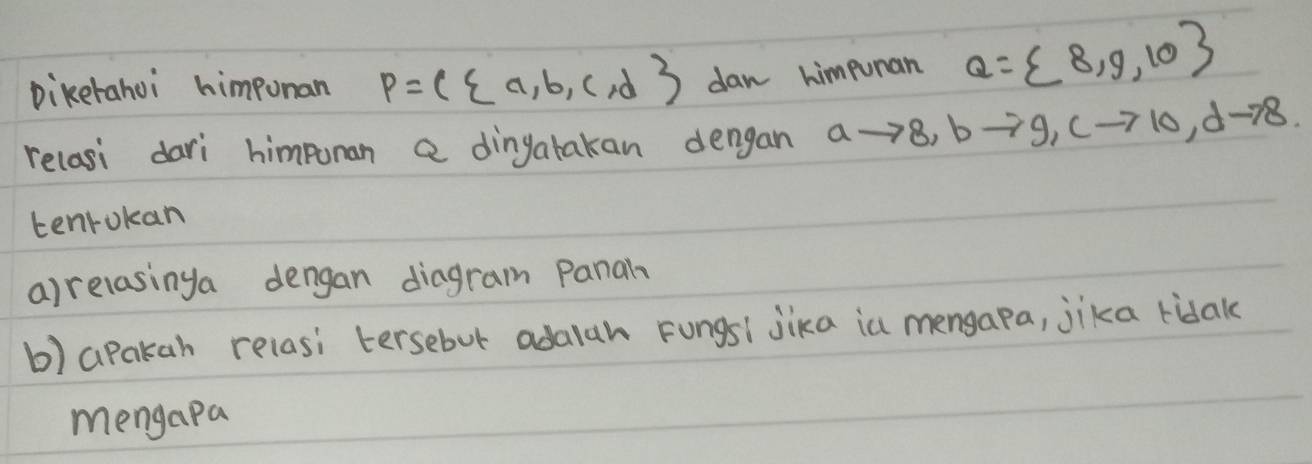 Diketahui himpunan P=({a,b,c,d} dan himpunan Q={8,9,10}
relasi dari himpunan Q dingatakan dengan a→8, b→9, c→10, d→8.
tentukan
a) relasinya dengan diagram Panah
b) apakah relasi tersebut adalah Fungsi jika ia mengapa, jika tidak
mengapa